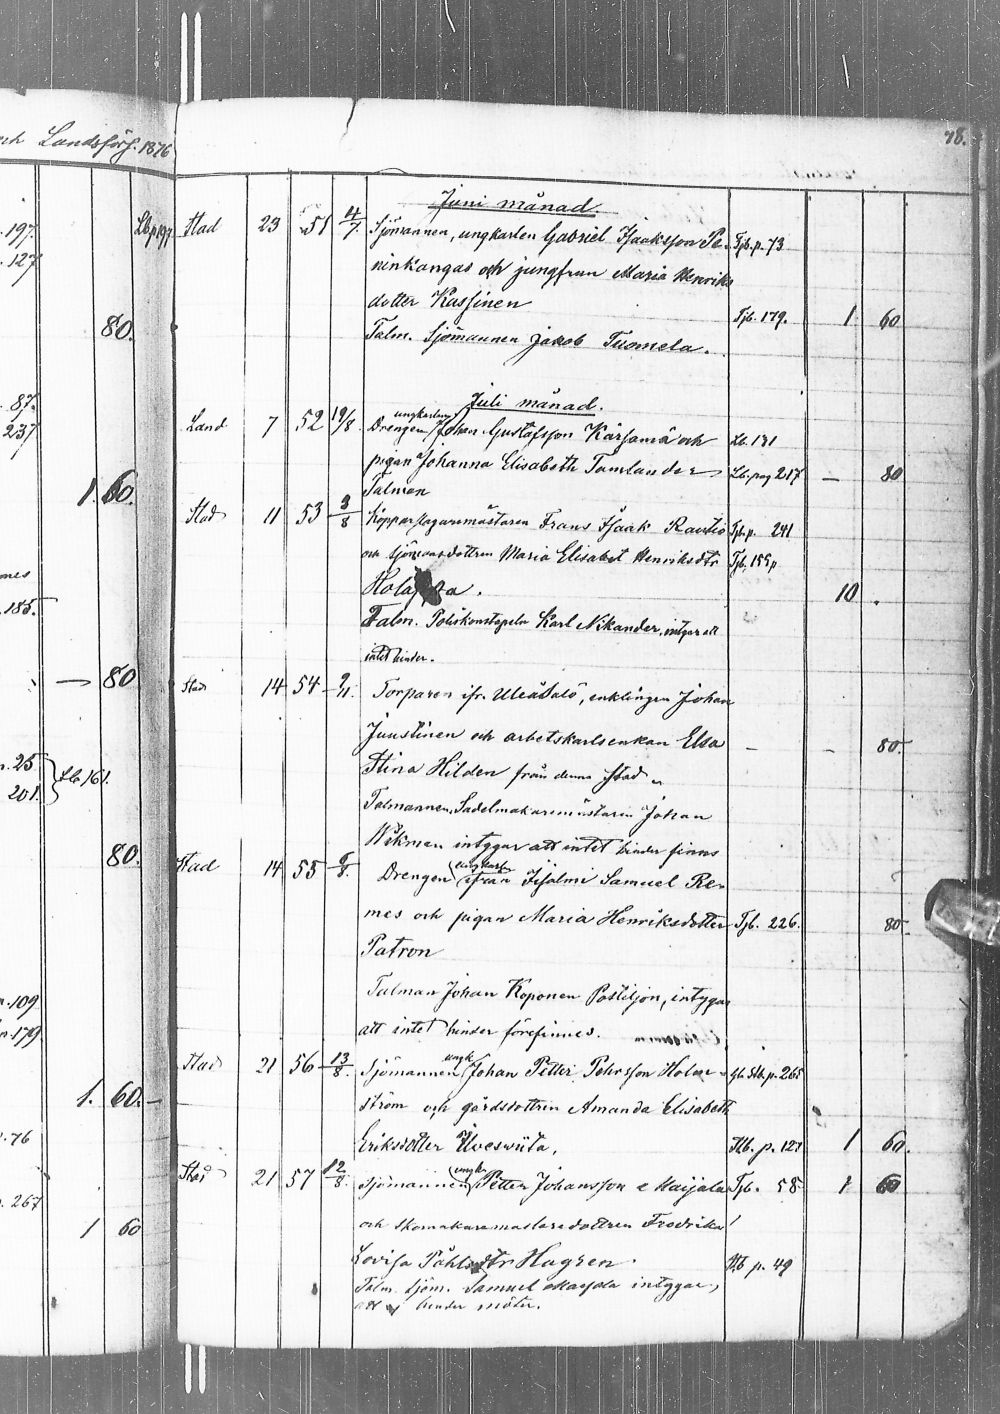 Landsförs. 1876
78.
197.
127
80.
87.
237
1. 60.
185.
— 80
25
201. Lb. 161.
80.
109
179.
1. 60.
76
267
1 60
Juni månad.
Lb p 197 Stad 23 51 4/7. Sjömannen, ungkarlen Gabriel Isaaksson Pe- Tjb. p. 73
ninkangas och jungfrun Maria Henriks
dotter Kassinen Tjb. 179. 1. 60
Talm. Sjömannen Jakob Tuomela.
Juli månad.
ungkarlen
Land 7 52 19/8 Drengen Johan Gustafsson Kärsämä och Lb. 131
pigan Johanna Elisabeth Tamlander Lb. pag 217 — 80
Talman
Stad 11 53 3/8 Kopparslagaremästaren Frans Isaak Rautio Tjb. p. 241
och sjömansdottren Maria Elisabet Henriksdtr Tjb. 155 p
Holappa. 10 .
Talm. Poliskonstapeln Karl Nikander, intygar att
intet hinder.
Stad 14 54 9/11. Torparen ifr. Uleåsalo, enklingen Johan
Juustinen och arbetskarlsenkan Elsa — — 80.
Stina Hilden från denna stad
Talmannen, Sadelmakaremästaren Johan
Wikman intygar att intet hinder finns
ungkarln
Stad 14 55 6/8. Drengen ifrån Iisalmi Samuel Re-
mes och pigan Maria Henriksdotter Tjb. 226. 80.
Patron
Talman Johan Koponen Postiljon, intygar
att intet hinder förefinnes.
ungk.
Stad 21 56 13/8. Sjömannen Johan Petter Pehrsson Holm- p. 265
ström och gårdsdottren Amanda Elisabeth
Eriksdotter Ulveswiita. Stb. p. 127 1 60.
ungk.
Stad 21 57 12/8. Sjömannen Petter Johansson Maijala Tjb. 58 1 60
och skomakaremästaredottren Fredrika
Lovisa Påhlsdtr Hagren. Stb p. 49
Talm. Sjöm. Samuel Maijala intygar,
att ej hinder möter.